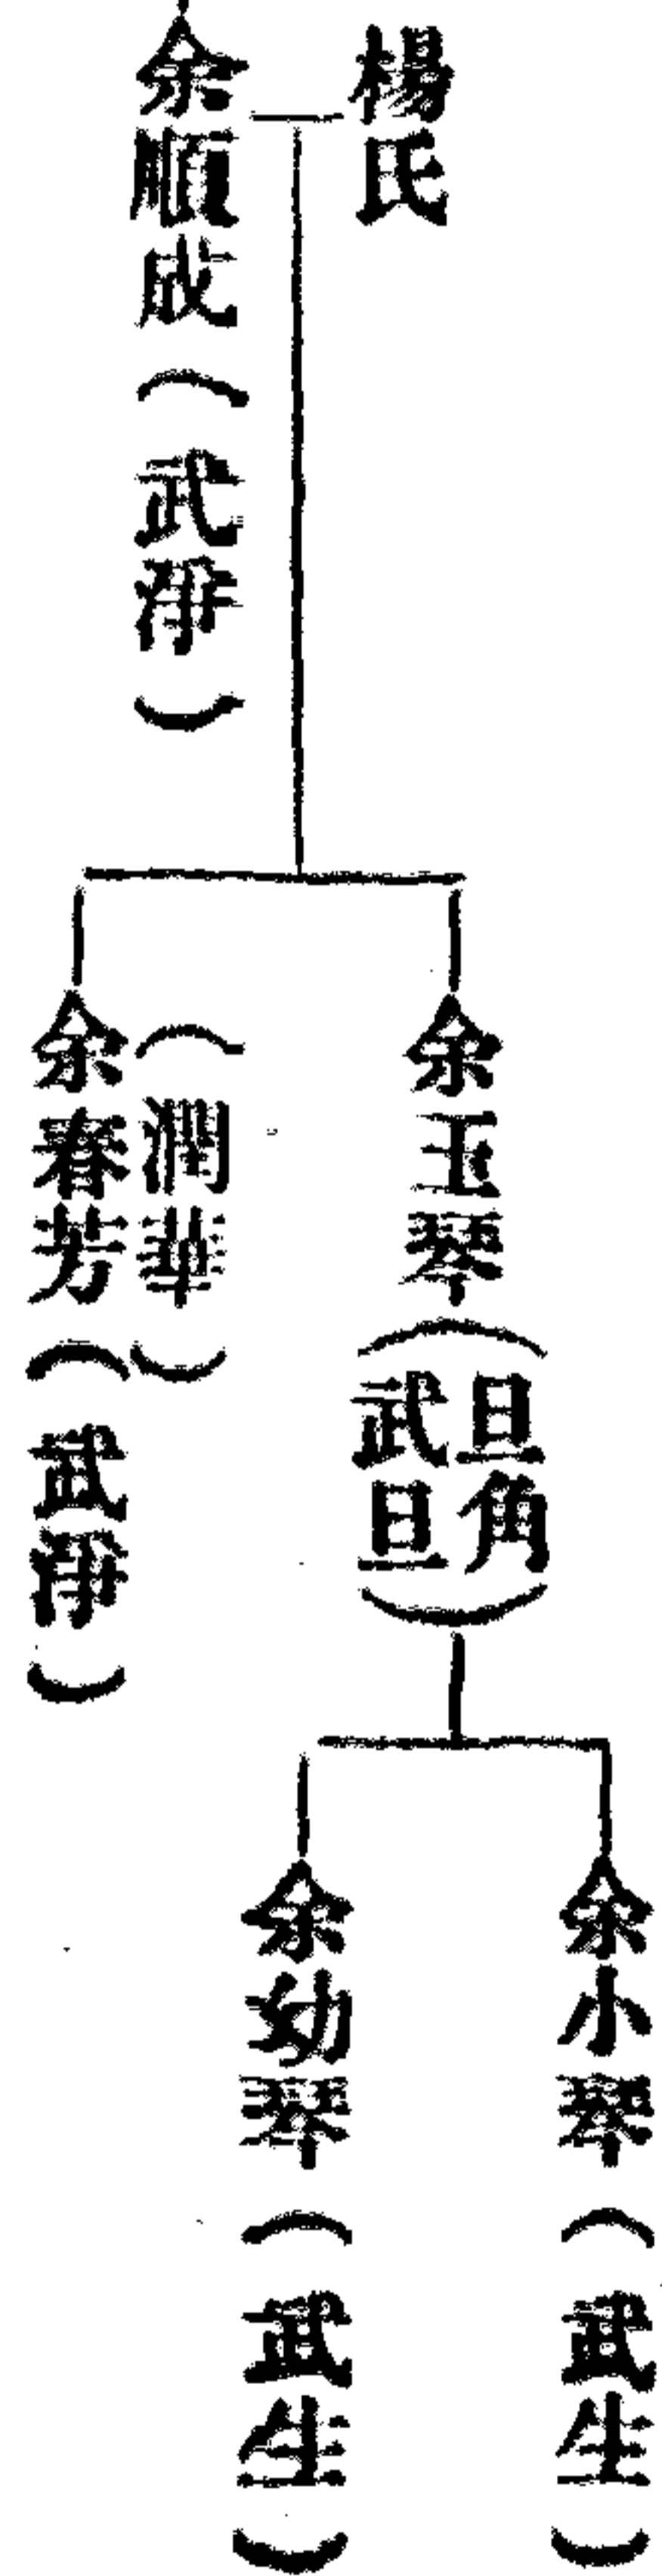 楊氏
余順成（武淨）
余玉琴（旦角
武旦）
（潤華）
余春芳（武淨）
余小琴（武生）
余幼琴（武生）